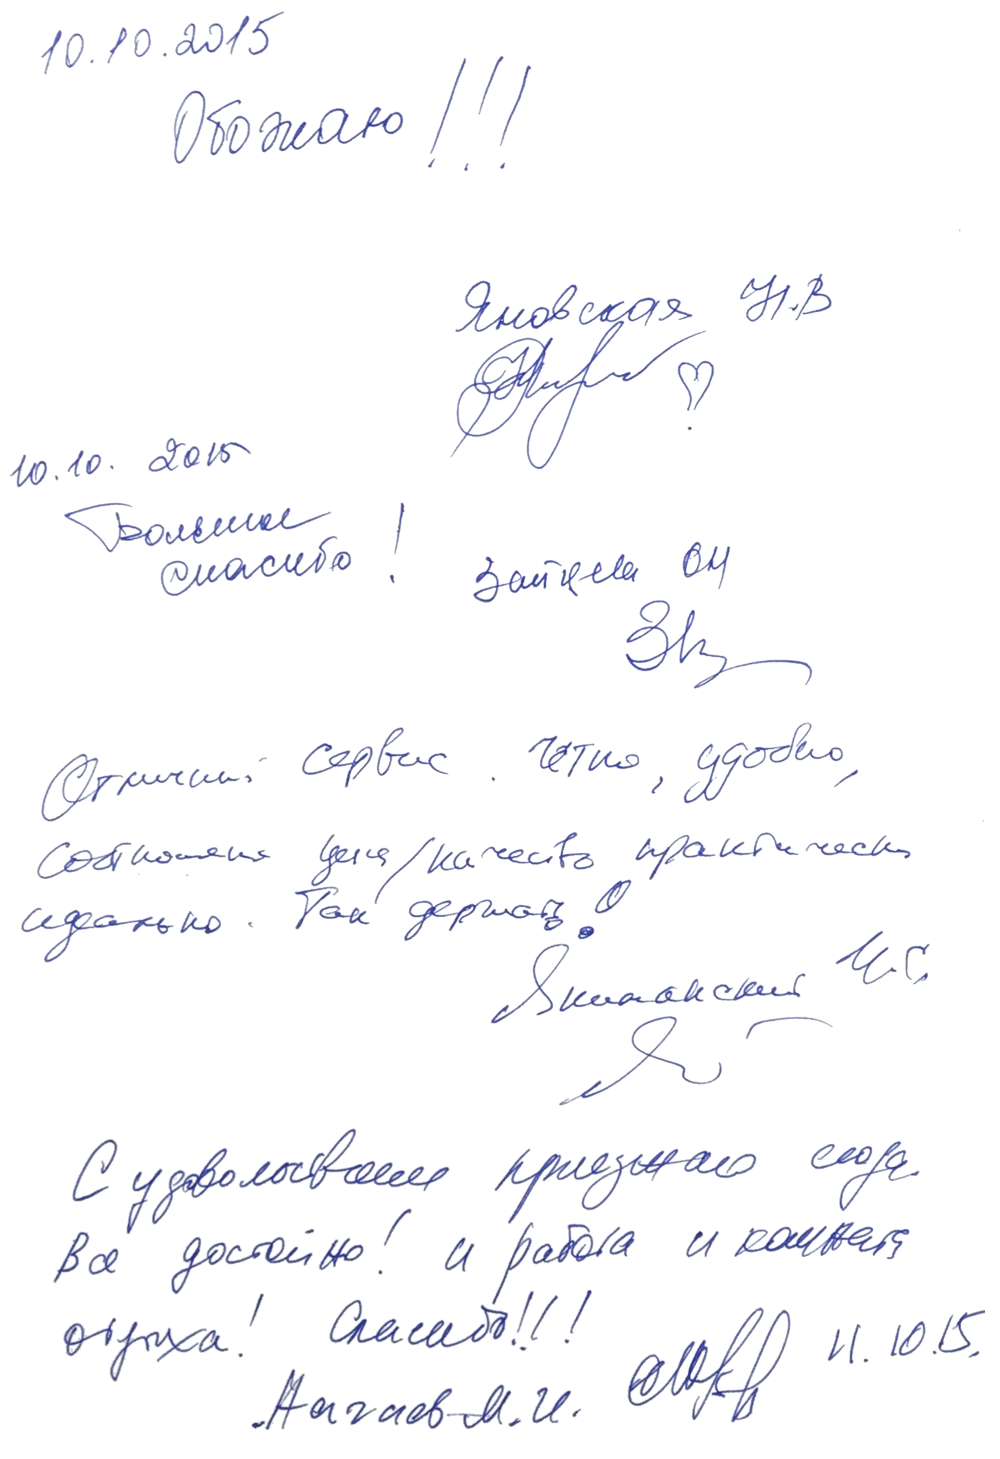 10.10.2015
Обожаю!!!
Яновская Н.В
10.10. 2015
Большое
спасибо!
Зайцева ОН
Отличный сервис. Четко, удобно,
соотношение цена/качество практически
идеально. Так держать!
Якиманский И.С.
С удовольствием приезжаю сюда.
Все достойно! и работа и комната
отдыха! Спасибо!!!
М.И. 11.10.15.